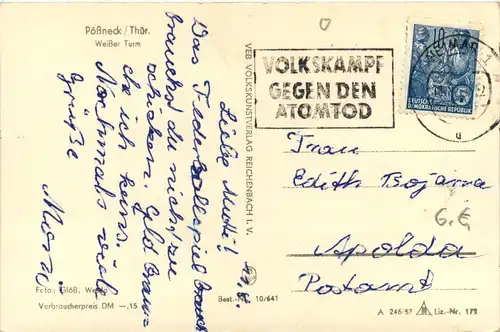 Pößneck / Thür.
Weißer Turm
Liebe Mutti!
Das Federballspiel brauch
brauchst du nicht zu
schicken. Geld brau-
che ich keins.
Nochmals viele
Grüße
Foto: Glöß, We
Verbraucherpreis DM —,15
Best.- 10/641
VEB VOLKSKUNSTVERLAG REICHENBACH I. V.
VOLKSKAMPF
GEGEN DEN
ATOMTOD
WEIMAR 1
10
DEUTSCHE
DEMOKRATISCHE REPUBLIK
Frau
Edith Bojarra
Apolda
Postamt
6.€
A 246/57 Liz.-Nr. 178